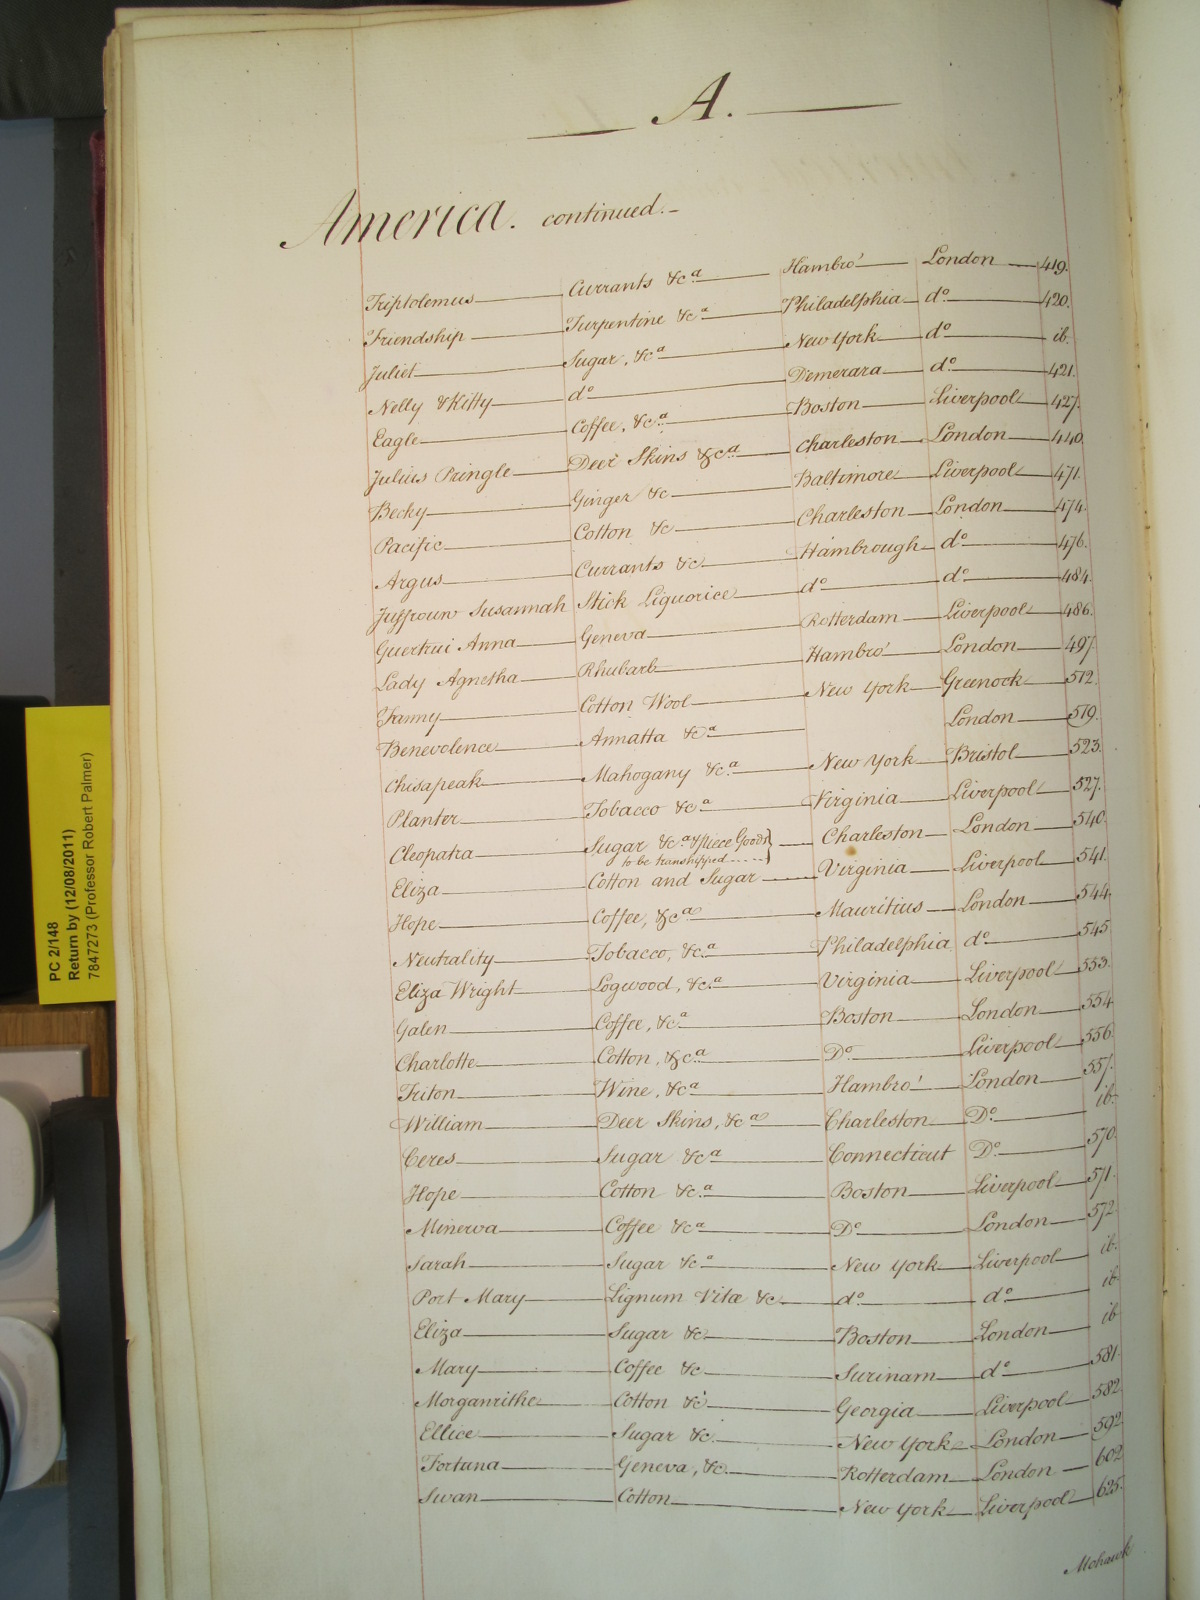 A.
America. continued.
Triptolemus Currants &c.a Hambro' London 419.
Friendship Turpentine &c.a Philadelphia do. 420.
Juliet Sugar, &c.a New York do. ib.
Nelly & Kitty do. Demerara do. 421.
Eagle Coffee, &c.a Boston Liverpool 427.
Julius Pringle Deer Skins &c.a Charleston London 440.
Becky Ginger &c Baltimore Liverpool 471.
Pacific Cotton &c Charleston London 474.
Argus Currants &c Hambrough do. 476.
Juffrouw Susannah Stick Liquorice do. do. 484.
Guertrui Anna Geneva Rotterdam Liverpool 486.
Lady Agnetha Rhubarb Hambro' London 497.
Fanny Cotton Wool New York Greenock 512.
Benevolence Annatta &c.a London 519.
Chisapeak Mahogany &c.a New York Bristol 523.
Planter Tobacco &c.a Virginia Liverpool 527.
Cleopatra Sugar &c.a & Piece Goods Charleston London 540.
to be transhipped
Eliza Cotton and Sugar Virginia Liverpool 541.
Hope Coffee, &c.a Mauritius London 544.
Neutrality Tobacco, &c.a Philadelphia do. 545.
Eliza Wright Logwood, &c.a Virginia Liverpool 553.
Galen Coffee, &c.a Boston London 554
Charlotte Cotton, &c.a Do. Liverpool 556.
Triton Wine, &c.a Hambro' London 557.
William Deer Skins, &c.a Charleston Do. ib.
Ceres Sugar &c.a Connecticut Do. 570.
Hope Cotton &c.a Boston Liverpool 571.
Minerva Coffee &c.a Do. London 572.
Sarah Sugar &c.a New York Liverpool ib.
Port Mary Lignum Vitæ &c. do. do. ib.
Eliza Sugar &c. Boston London ib.
Mary Coffee &c Surinam do. 581.
Morganrithe Cotton &c Georgia Liverpool 582.
Ellice Sugar &c. New York London 592.
Fortuna Geneva, &c. Rotterdam London 602
Swan Cotton New York Liverpool 625.
Mohawk
PC 2/148
Return by (12/08/2011)
7847273 (Professor Robert Palmer)